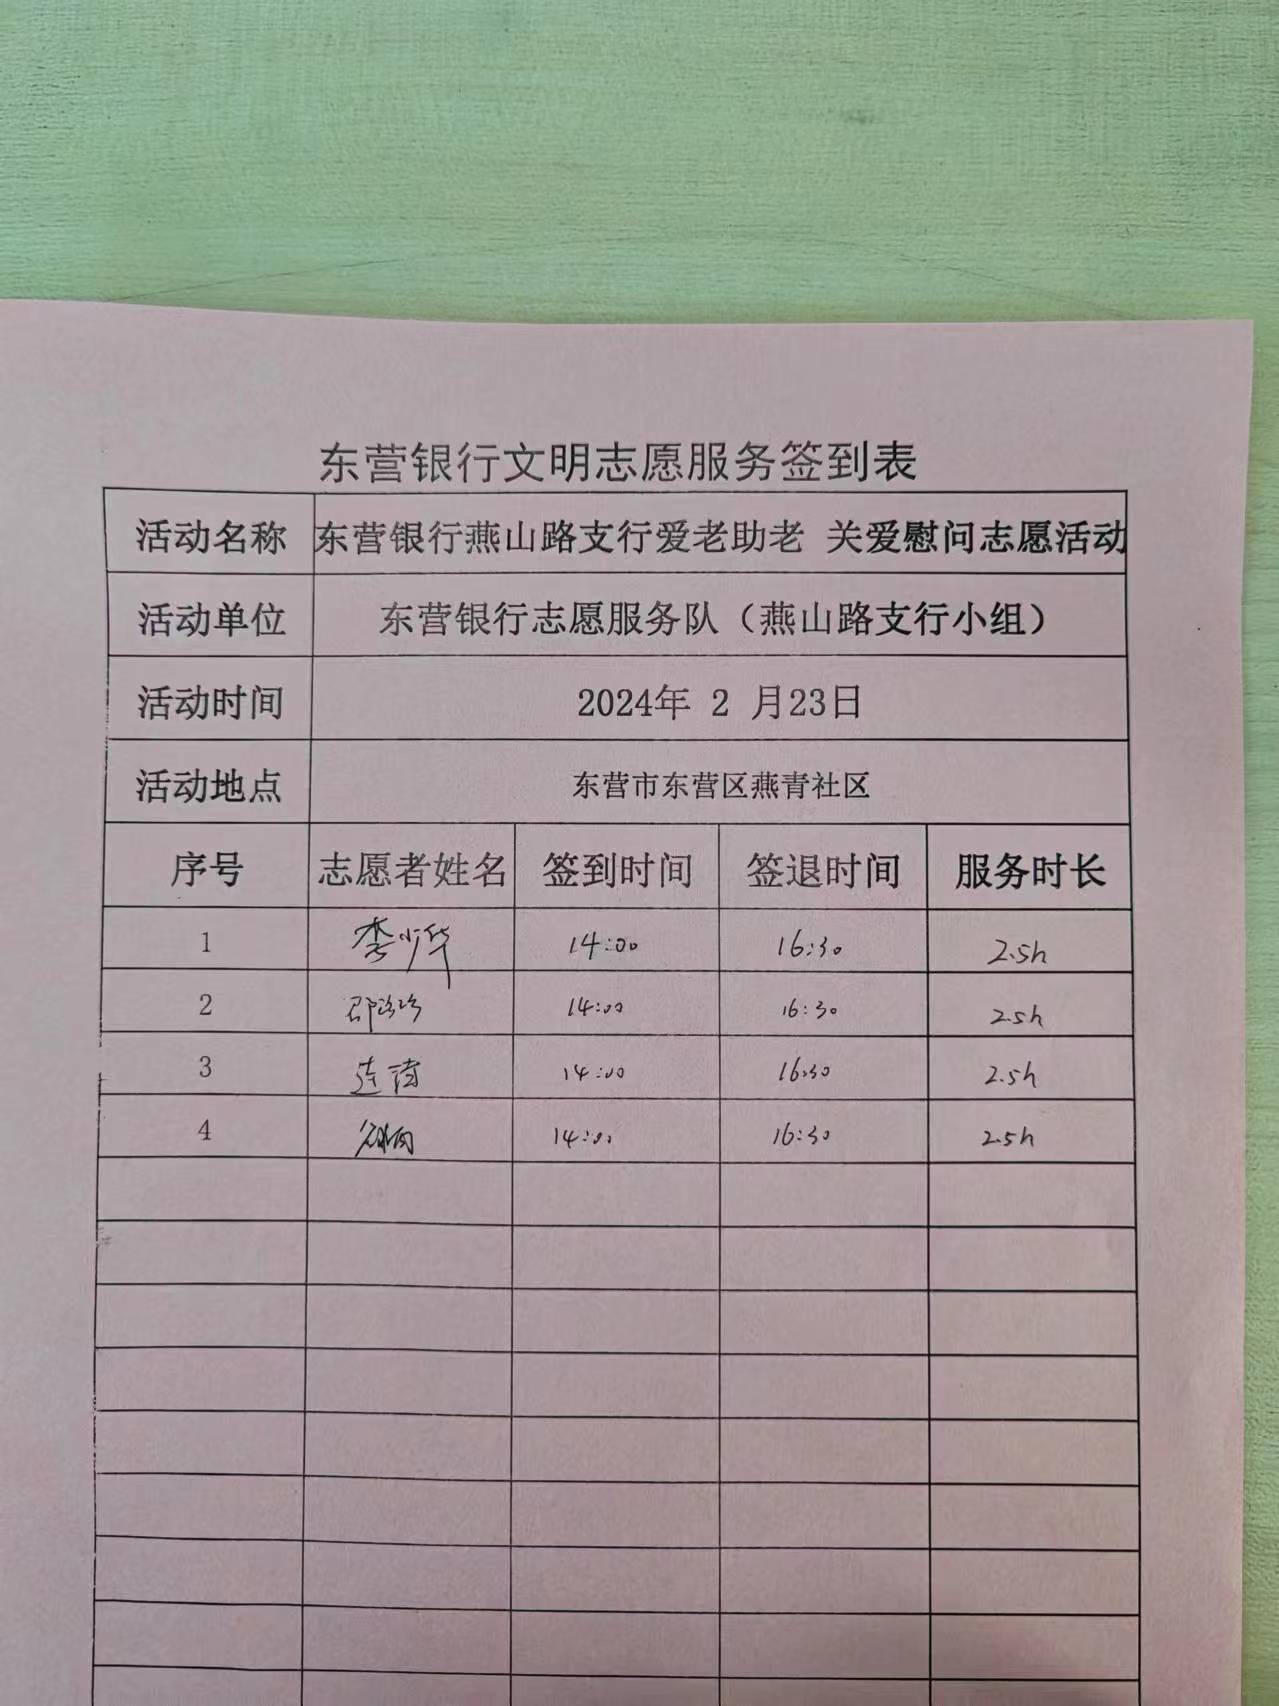 东营银行文明志愿服务签到表
活动名称 东营银行燕山路支行爱老助老 关爱慰问志愿活动
活动单位 东营银行志愿服务队（燕山路支行小组）
活动时间 2024年 2 月23日
活动地点 东营市东营区燕青社区
序号 志愿者姓名 签到时间 签退时间 服务时长
1 李少华 14:00 16:30 2.5h
2 邵珍珍 14:00 16:30 2.5h
3 14:00 16:30 2.5h
4 14:00 16:30 2.5h